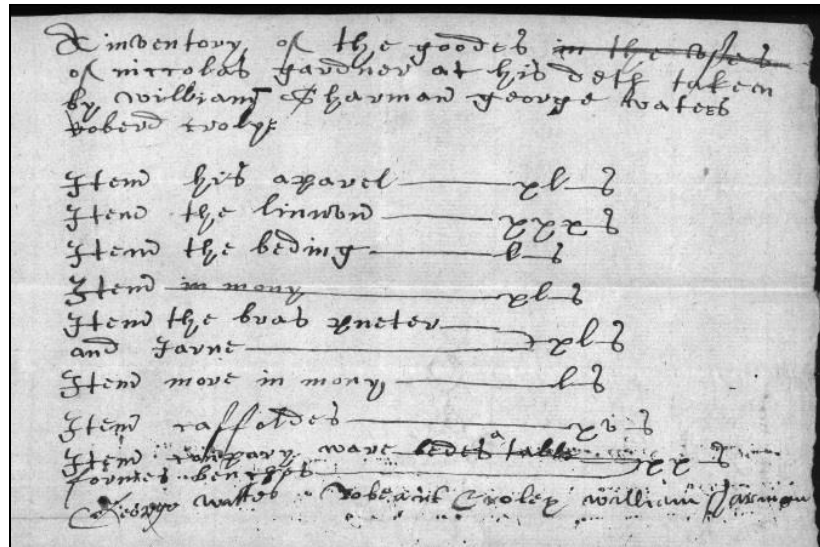 A inventory of the goodes in the
of niccolas gardner at his deth taken
by william Sharman george waters
Roberd croly
Item his aparel xl s
Item the linnon xxx s
Item the beding l s
Item in mony xl s
Item the bras pueter
and Iarne xl s
Item more in mony l s
Item caffoldes xv s
Item ware bedes a table
formes benches xx s
George wattes Robeart Croley william Sarman